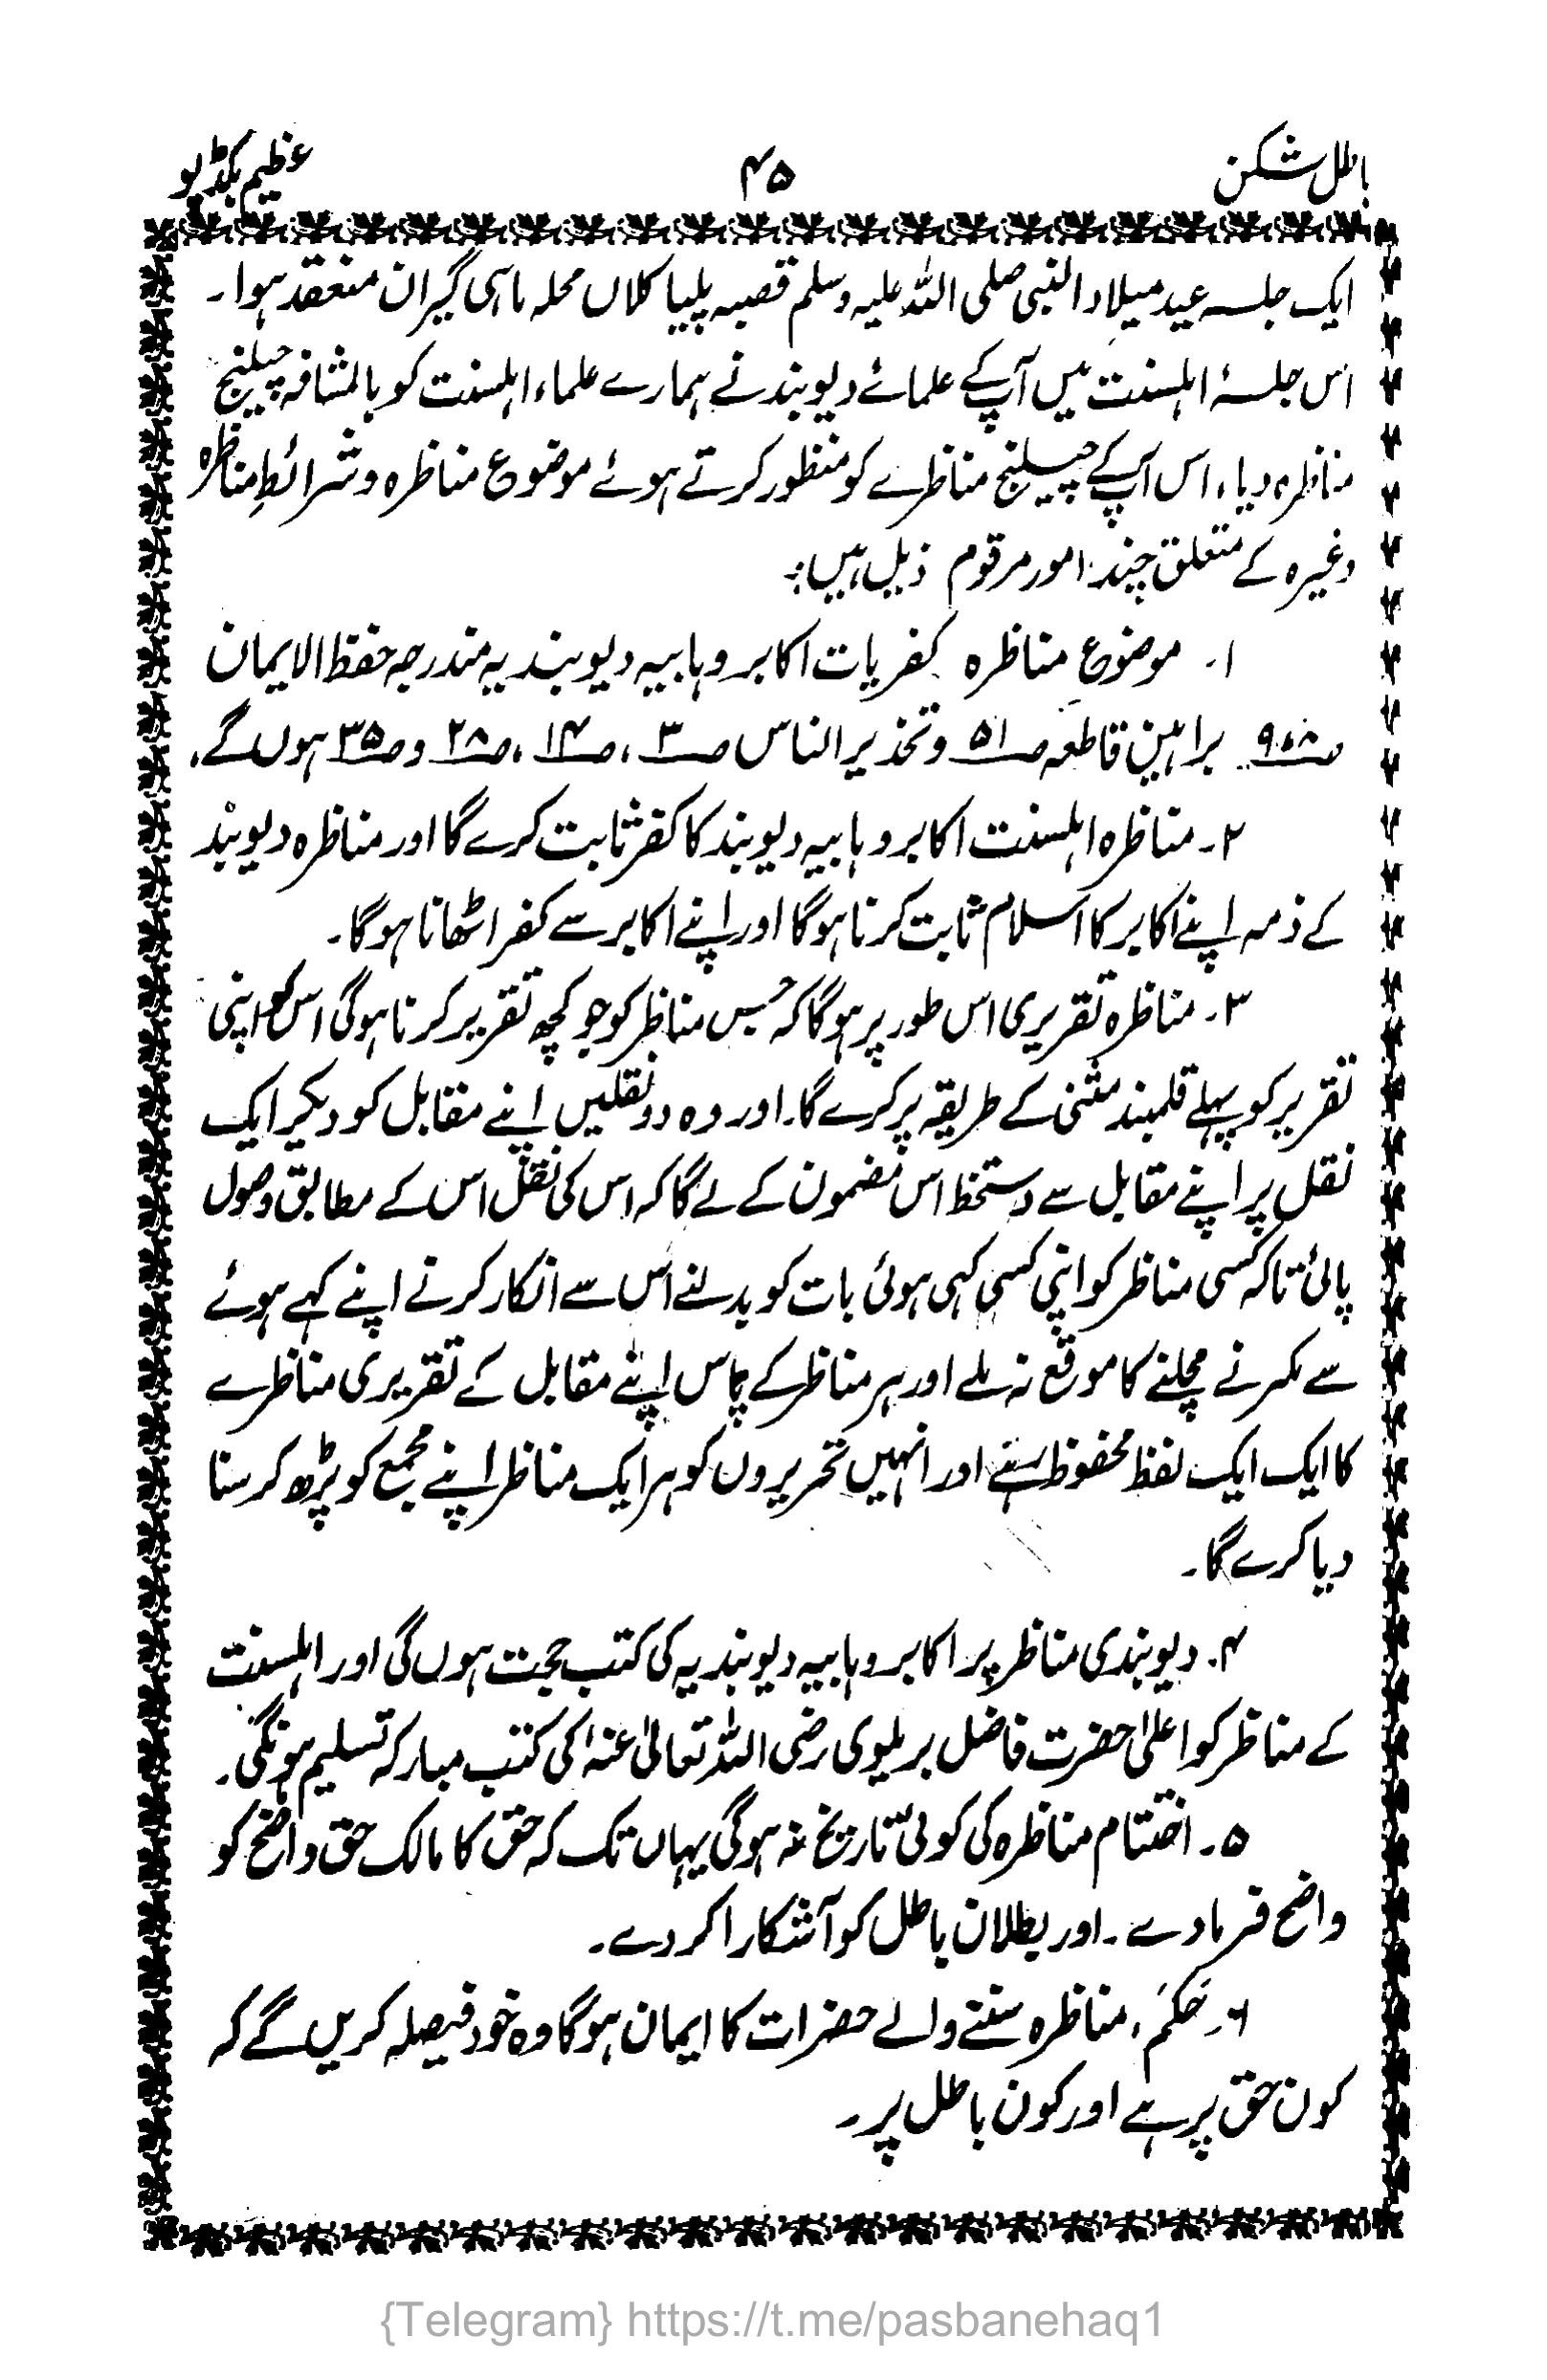 باطل شکن
۴۵
عظیم بکڈپو
ایک جلسہ عید میلاد النبی صلی اللہ علیہ وسلم قصبہ پلیا کلاں محلہ ماہی گیران منعقد ہوا۔
اس جلسۂ اہلسنت میں آپ کے علمائے دیوبند نے ہمارے علماء اہلسنت کو بالمشافہ چیلنج
مناظرہ دیا، اس آپ کے چیلنج مناظرے کو منظور کرتے ہوئے موضوع مناظرہ و شرائطِ مناظرہ
وغیرہ کے متعلق چند امور مرقوم ذیل ہیں:
۱۔ موضوعِ مناظرہ کفریات اکابر وہابیہ دیوبندیہ مندرجہ حفظ الایمان
صـ۹،۸ براہین قاطعہ صـ۵۱ و تحذیر الناس صـ۳، صـ۱۴، صـ۲۸ و صـ۳۵ ہوں گے،
۲۔ مناظرہ اہلسنت اکابر وہابیہ دیوبند کا کفر ثابت کرے گا اور مناظرہ دیوبند
کے ذمہ اپنے اکابر کا اسلام ثابت کرنا ہوگا اور اپنے اکابر سے کفر اٹھانا ہوگا۔
۳۔ مناظرہ تقریری اس طور پر ہوگا کہ جس مناظر کو جو کچھ تقریر کرنا ہوگی اس کو اپنی
تقریر کو پہلے قلمبند مثنی کے طریقہ پر کرے گا۔ اور وہ دو نقلیں اپنے مقابل کو دیکر ایک
نقل پر اپنے مقابل سے دستخط اس مضمون کے لے گا کہ اس کی نقل اس کے مطابق وصول
پائی تاکہ کسی مناظر کو اپنی کسی کہی ہوئی بات کو بدلنے اس سے انکار کرنے اپنے کہے ہوئے
سے مکرنے مچلنے کا موقع نہ ملے اور ہر مناظر کے پاس اپنے مقابل کے تقریری مناظرے
کا ایک ایک لفظ محفوظ رہے اور انہیں تحریروں کو ہر ایک مناظر اپنے مجمع کو پڑھ کر سنا
دیا کرے گا۔
۴۔ دیوبندی مناظر پر اکابر وہابیہ دیوبندیہ کی کتب حجت ہوں گی اور اہلسنت
کے مناظر کو اعلیٰ حضرت فاضل بریلوی رضی اللہ تعالیٰ عنہ کی کتب مبارکہ تسلیم ہونگی۔
۵۔ اختتام مناظرہ کی کوئی تاریخ نہ ہوگی یہاں تک کہ حق کا مالک حق واضح کو
واضح فرمادے۔ اور بطلان باطل کو آشکارا کردے۔
۶۔ حَکَم، مناظرہ سننے والے حضرات کا ایمان ہوگا وہ خود فیصلہ کریں گے کہ
کون حق پر ہے اور کون باطل پر۔
{Telegram} https://t.me/pasbanehaq1